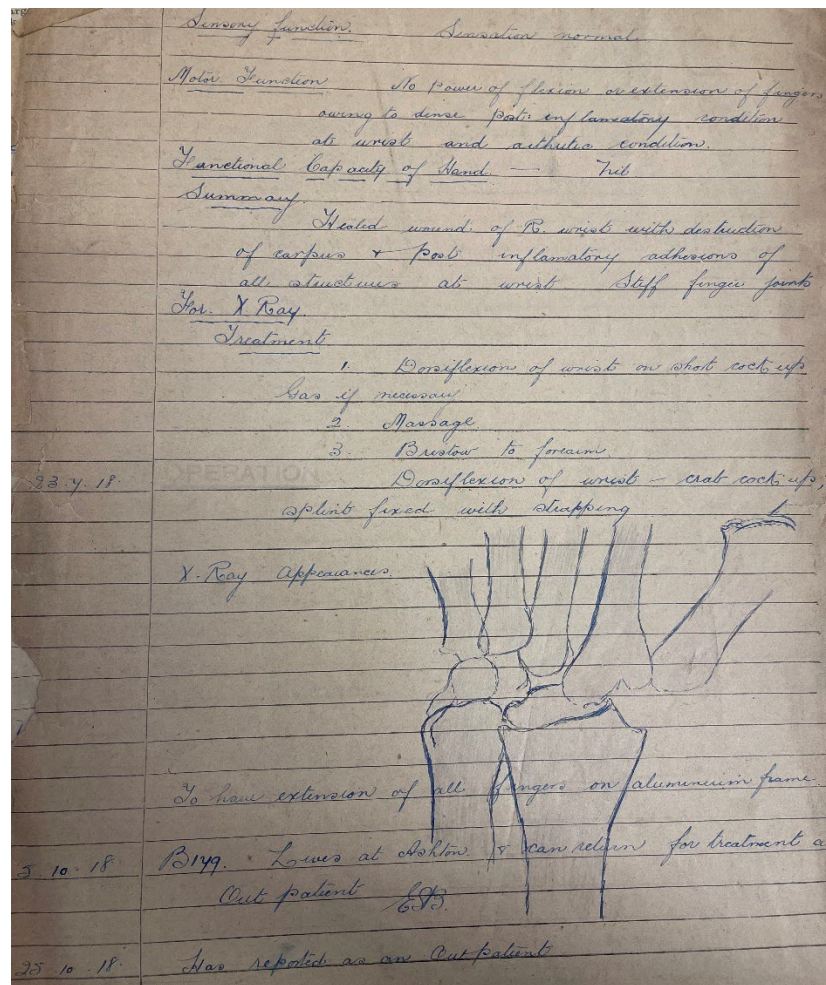 Sensory function. Sensation normal.
Motor Function No Power of flexion or extension of fingers
owing to dense post. inflamatory condition
at wrist and arthritic condition.
Functional Capacity of Hand. — Nil
Summary.
Healed wound of R. wrist with destruction
of carpus + Post inflamatory adhesions of
all structures at wrist Stiff finger joints
For. X Ray.
Treatment
1. Dorsiflexion of wrist on short cock up
Gas if necessary
2. Massage.
3. Bristow to forearm.
23.7.18. Dorsiflexion of wrist – crab cock up,
splint fixed with strapping
X-Ray Appearances.
To have extension of all fingers on aluminium frame.
5.10.18 B179. Lives at Ashton & can return for treatment a
Out patient EB.
25.10.18. Has reported as an Out patient